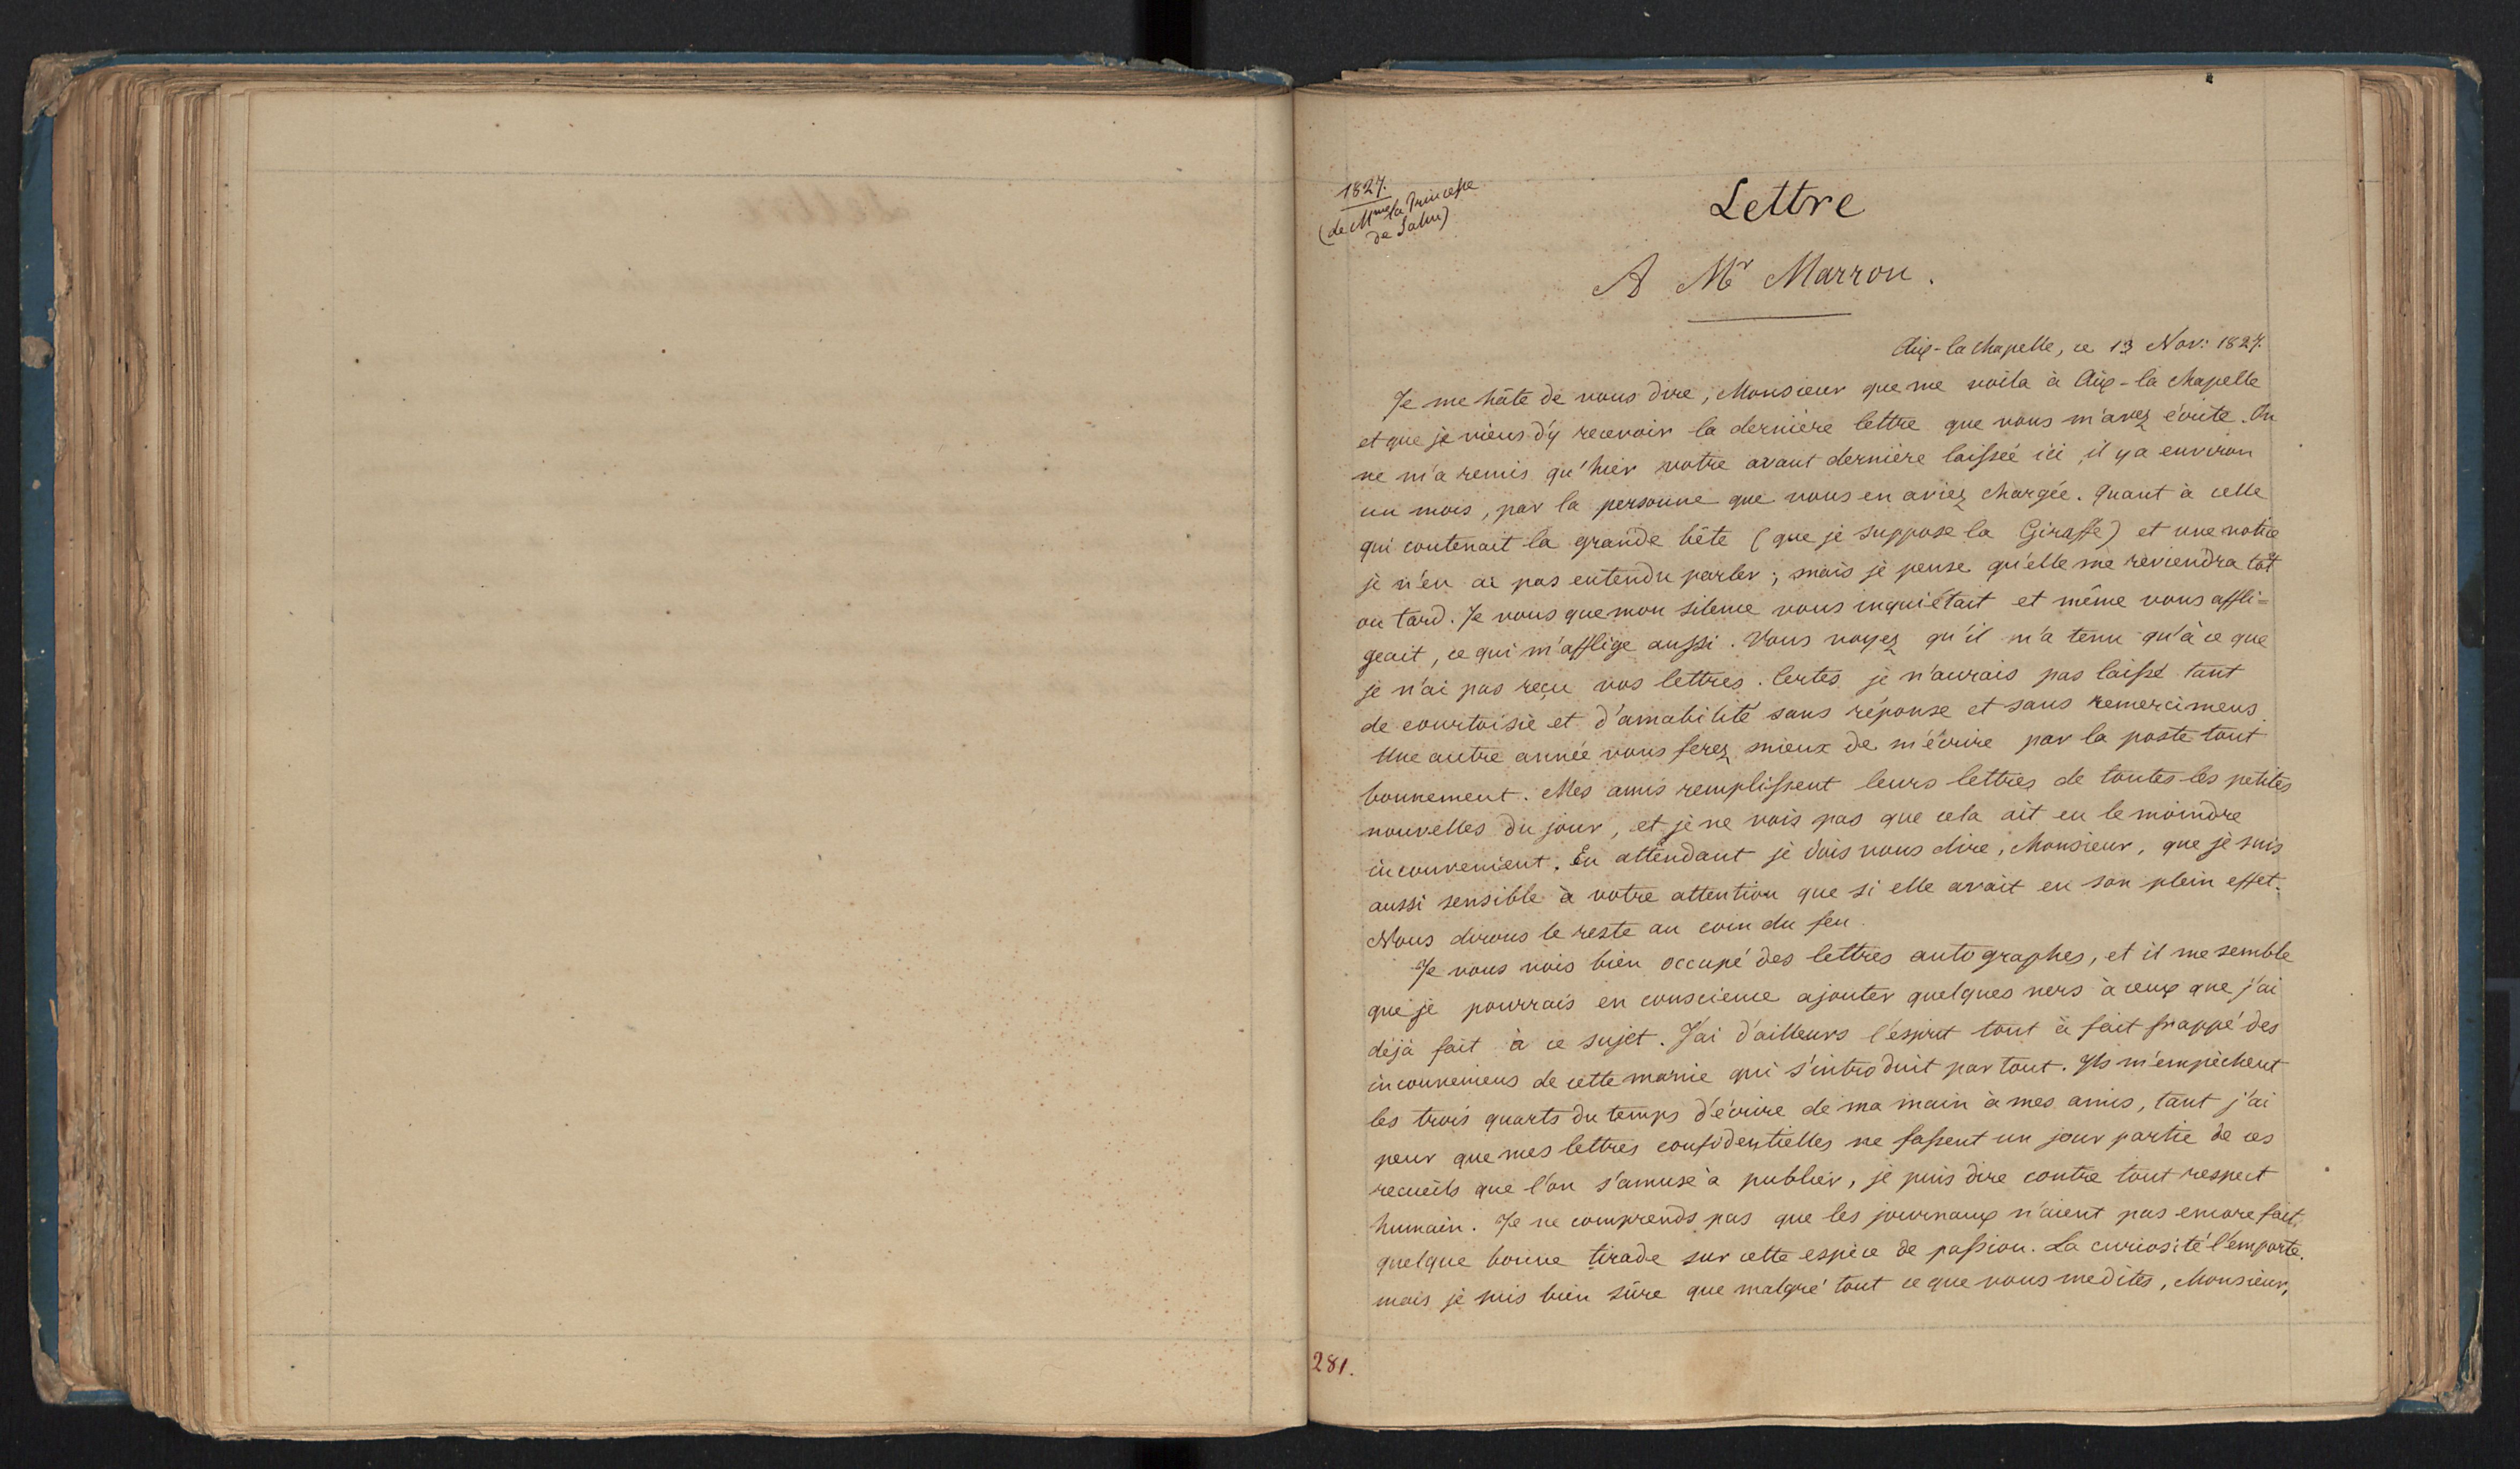 1827.
(de Mme la Princesse
de Salm)
Lettre
A Mr Marron.
Aix-la chapelle, ce 13 Nov: 1827.
Je me hâte de vous dire, Monsieur que me voila à Aix-la chapelle
et que je viens d'y recevoir la dernière lettre que vous m'avez écrite. On
ne m'a remis qu'hier votre avant dernière laissée ici, il y a environ
un mois, par la personne que vous en aviez chargée. Quant à celle
qui contenait la grande bête (que je suppose la Giraffe) et une notice
je n'en ai pas entendu parler; mais je pense qu'elle me reviendra tôt
ou tard. Je vous que mon silence vous inquiétait et même vous affli=
geait, ce qui m'afflige aussi. Vous voyez qu'il n'a tenu qu'à ce que
je n'ai pas reçu vos lettres. Certes je n'aurais pas laissé tant
de courtoisie et d'amabilité sans réponse et sans remercimens.
Une autre année vous ferez mieux de m'écrire par la poste tout
bonnement. Mes amis remplissent leurs lettres de toutes les petites
nouvelles du jour, et je ne vois pas que cela ait eu le moindre
inconvenient. En attendant je dois vous dire, Monsieur, que je suis
aussi sensible à votre attention que si elle avait eu son plein effet.
Nous dirons le reste au coin du feu.
Je vous vois bien occupé des lettres autographes, et il me semble
que je pourrais en conscience ajouter quelques vers à ceux que j'ai
déjà fait à ce sujet. J'ai d'ailleurs l'esprit tout à fait frappé des
inconveniens de cette manie qui s'introduit par tout. Ils m'empêchent
les trois quarts du temps d'écrire de ma main à mes amis, tant j'ai
peur que mes lettres confidentielles ne fassent un jour partie de ces
recueils que l'on s'amuse à publier, je puis dire contre tout respect
humain. Je ne comprends pas que les journaux n'aient pas encore fait
quelque bonne tirade sur cette espèce de passion. La curiosité l'emporte.
mais je suis bien sûre que malgré tout ce que vous me dites, Monsieur,
281.